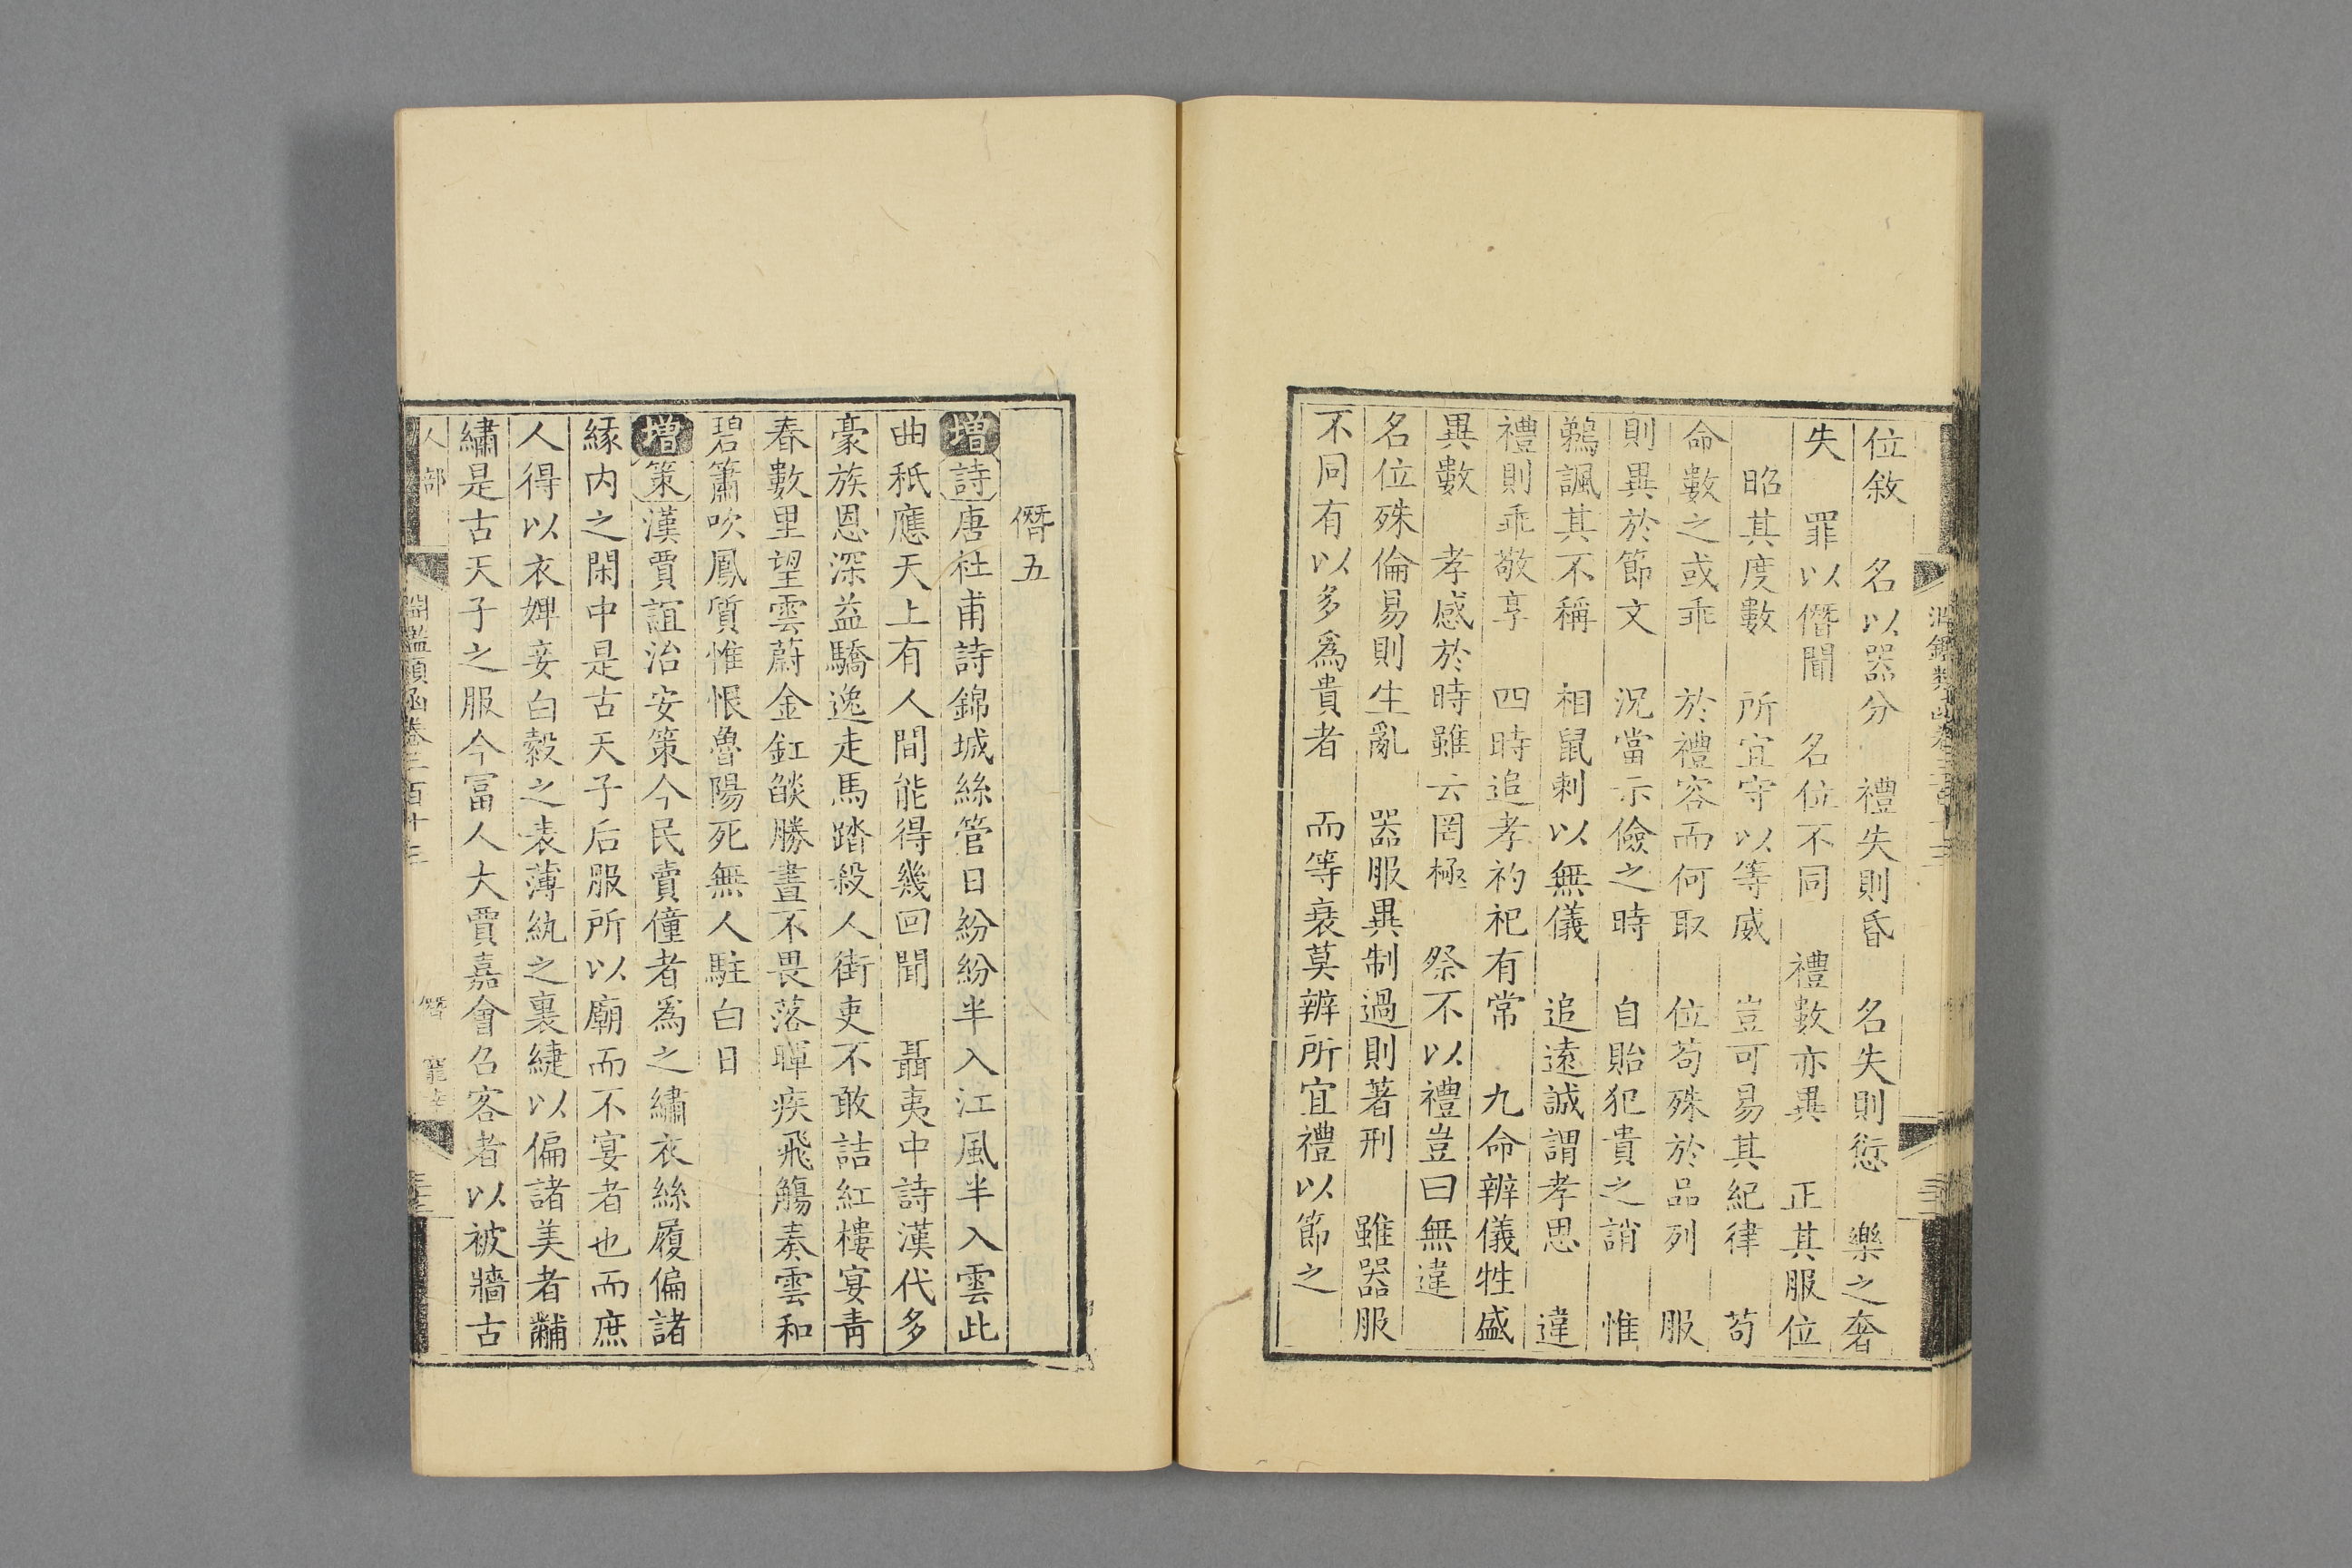 位敘　名以器分　禮失則昏　名失則愆　樂之奢
失　罪以僭聞　名位不同　禮數亦異　正其服位
昭其度數　所宜守以等威　豈可易其紀律　苟
命數之或乖　於禮容而何取　位苟殊於品列　服
則異於節文　況當示儉之時　自貽犯貴之誚　惟
鵜諷其不稱　相鼠刺以無儀　追遠誠謂孝思　違
禮則乖敬享　四時追孝礿祀有常　九命辨儀牲盛
異數　孝感於時雖云罔極　祭不以禮豈曰無違
名位殊倫易則生亂　器服異制過則著刑　雖器服
不同有以多爲貴者　而等衰莫辨所宜禮以節之
僭五
增詩唐杜甫詩錦城絲管日紛紛半入江風半入雲此
曲秖應天上有人間能得幾回聞　聶夷中詩漢代多
豪族恩深益驕逸走馬踏殺人街吏不敢詰紅樓宴青
春數里望雲蔚金釭燄勝晝不畏落暉疾飛觴奏雲和
碧簫吹鳳質惟恨魯陽死無人駐白日
增策漢賈誼治安策今民賣僮者爲之繡衣絲履偏諸
緣內之閑中是古天子后服所以廟而不宴者也而庶
人得以衣婢妾白縠之表薄紈之裏緁以偏諸美者黼
繡是古天子之服今富人大賈嘉會召客者以被牆古
人部　淵鑑類函卷三百十三　僭　寵幸